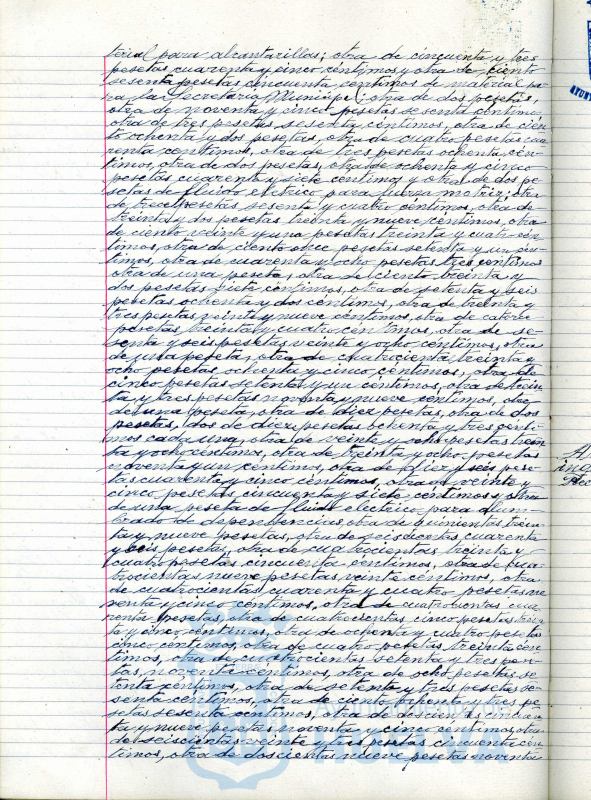 terial para alcantarillas; otra de cincuenta y tres
pesetas cuarenta y cinco céntimos y otra de ciento
sesenta pesetas cincuenta centimos de material pa-
ra la Secretaria Municipal; otra de dos pesetas,
otra de noventa y cinco pesetas sesenta céntimos
otra de tres pesetas sesenta céntimos, otra de cien-
to ochenta y dos pesetas, otra de cuatro pesetas cua-
renta centimos, otra de tres pesetas ochenta cén-
timos, otra de dos pesetas, otra de ochenta y cinco
pesetas cuarenta y siete céntimos y otra de dos pe-
setas de fluido eletrico para fuerza motriz; otra
de trece pesetas sesenta y cuatro céntimos, otra de
treinta y dos pesetas treinta y nueve céntimos, otra
de ciento veinte y una pesetas treinta y cuatro cén-
timos, otra de ciento once pesetas setenta y un cén-
timos, otra de cuarenta y ocho pesetas tres centimos
otra de una peseta, otra de ciento treinta y
dos pesetas siete céntimos, otra de setenta y seis
pesetas ochenta y dos céntimos, otra de treinta y
tres pesetas veinte y nueve céntimos, otra de catorce
pesetas treinta y cuatro céntimos, otra de se-
senta y seis pesetas veinte y ocho céntimos, otra
de una peseta, otra de cuatrocienta treinta y
ocho pesetas ochenta y cinco centimos, otra de
cinco pesetas setenta y un céntimos, otra de trein-
ta y tres pesetas noventa y nueve céntimos, otra
de una peseta, otra de diez pesetas, otra de dos
pesetas, dos de diez pesetas ochenta y tres cénti-
mos cada una, otra de veinte y ocho pesetas trein-
ta y ocho céstimos, otra de treinta y ocho pesetas
noventa y un centimos, otra de diez y seis pese-
tas cuarenta y cinco céntimos, otra de veinte y
cinco pesetas cincuenta y siete céntimos y otra
de una peseta de fluido electrico para alum-
brado de dependencias, otra de quinientas trein-
ta y nueve pesetas, otra de seiscientas cuarenta
y seis pesetas, otra de cuatrocientas treinta y
cuatro pesetas cincuenta centimos, otra de cua-
trocientas nueve pesetas veinte céntimos, otra
de cuatrocientas cuarenta y cuatro pesetas no-
venta y cinco céntimos, otra de cuatrocientas cua-
renta pesetas, otra de cuatrocientas cinco pesetas trein-
ta y cinco céntimos, otra de ochenta y cuatro pesetas
cinco céntimos, otra de cuatro pesetas, treinta cén-
timos, otra de cuatrocientas setenta y tres pese-
tas, noventa céntimos, otra de ocho pesetas se-
tenta céntimos, otra de setenta y tres pesetas se-
senta céntimos, otra de ciento pesetas, tres pe-
setas sesenta céntimos, otra de doscientas cincuen-
ta y nueve pesetas noventa y cinco céntimos, otra
de seiscientas veinte y tres pesetas cincuenta cén-
timos, otra de doscientas nueve pesetas noventa